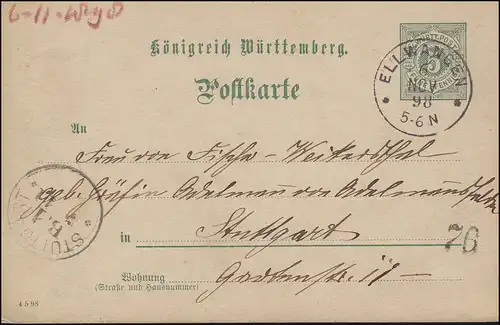 Königreich Württemberg.
Postkarte
ELLWANGEN
6
NOV
98
5-6 N
5
An
Frau von Fischer-Weikersthal
geb: Gräfin Adelmann von Adelmannsfelden
in Stuttgart
Gartenstr. 11
76
Wohnung
(Straße und Hausnummer)
4 5 98